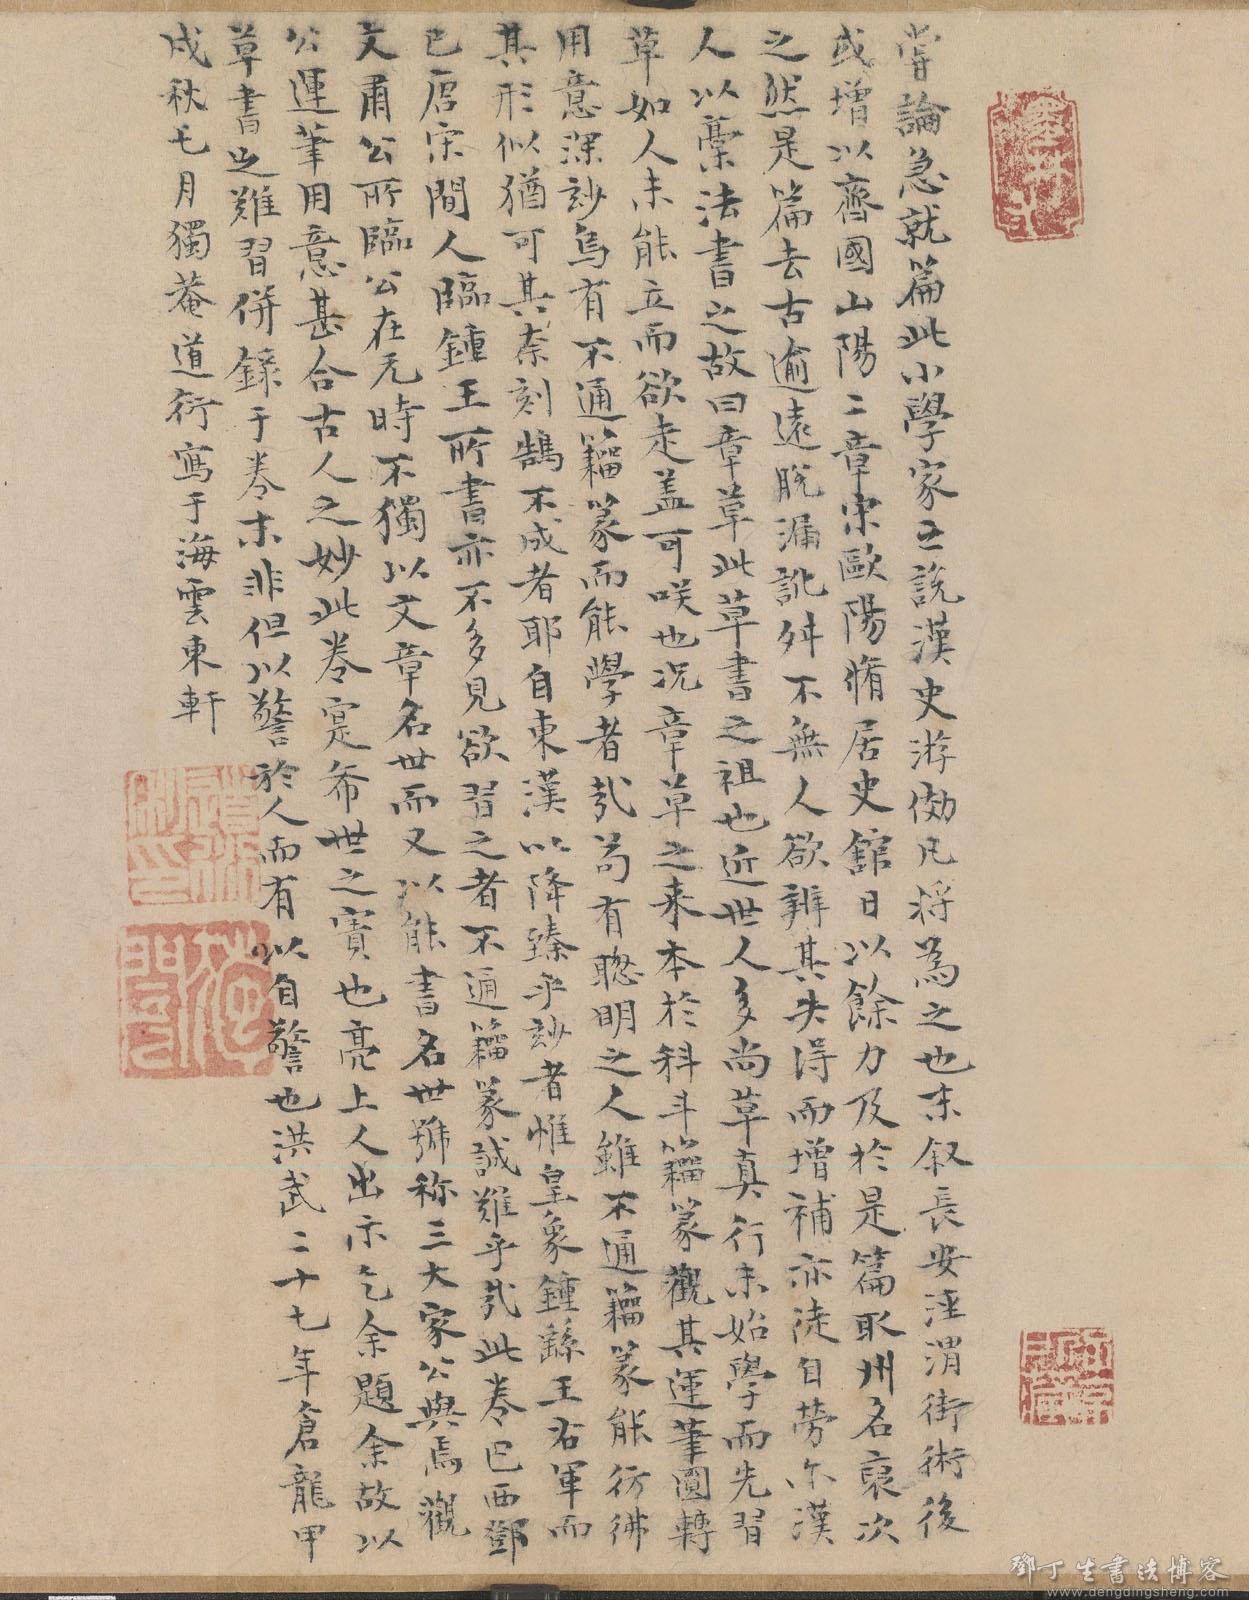 嘗論急就篇此小學家之說漢史游倣凡將為之也末叙長安涇渭街術後
或增以齊國山陽二章宋歐陽脩居史舘日以餘力及於是篇取州名裒次
之然是篇去古逾遠脫漏訛舛不無人欲辨其失得而增補亦徒自勞尔漢
人以稾法書之故曰章草此草書之祖也近世人多尚草真行未始學而先習
草如人未能立而欲走盖可咲也況章草之来本於科斗籀篆觀其運筆圓轉
用意深玅烏有不通籀篆而能學者㢤苟有聦明之人雖不通籀篆能彷彿
其形似猶可其柰刻鵠不成者耶自東漢以降臻乎玅者惟皇象鍾繇王右軍而
已唐宋間人臨鍾王所書亦不多見欲習之者不通籀篆誠難乎㢤此卷巴西鄧
文肅公所臨公在元時不獨以文章名世而又以能書名世號称三大家公與焉觀
公運筆用意甚合古人之妙此卷寔希世之寳也亮上人出示乞余題余故以
草書之難習併錄于卷末非但以警於人而有以自警也洪武二十七年倉龍甲
戌秋七月獨菴道衍寫于海雲東軒
鄧丁生書法博客
www.dengdingsheng.com